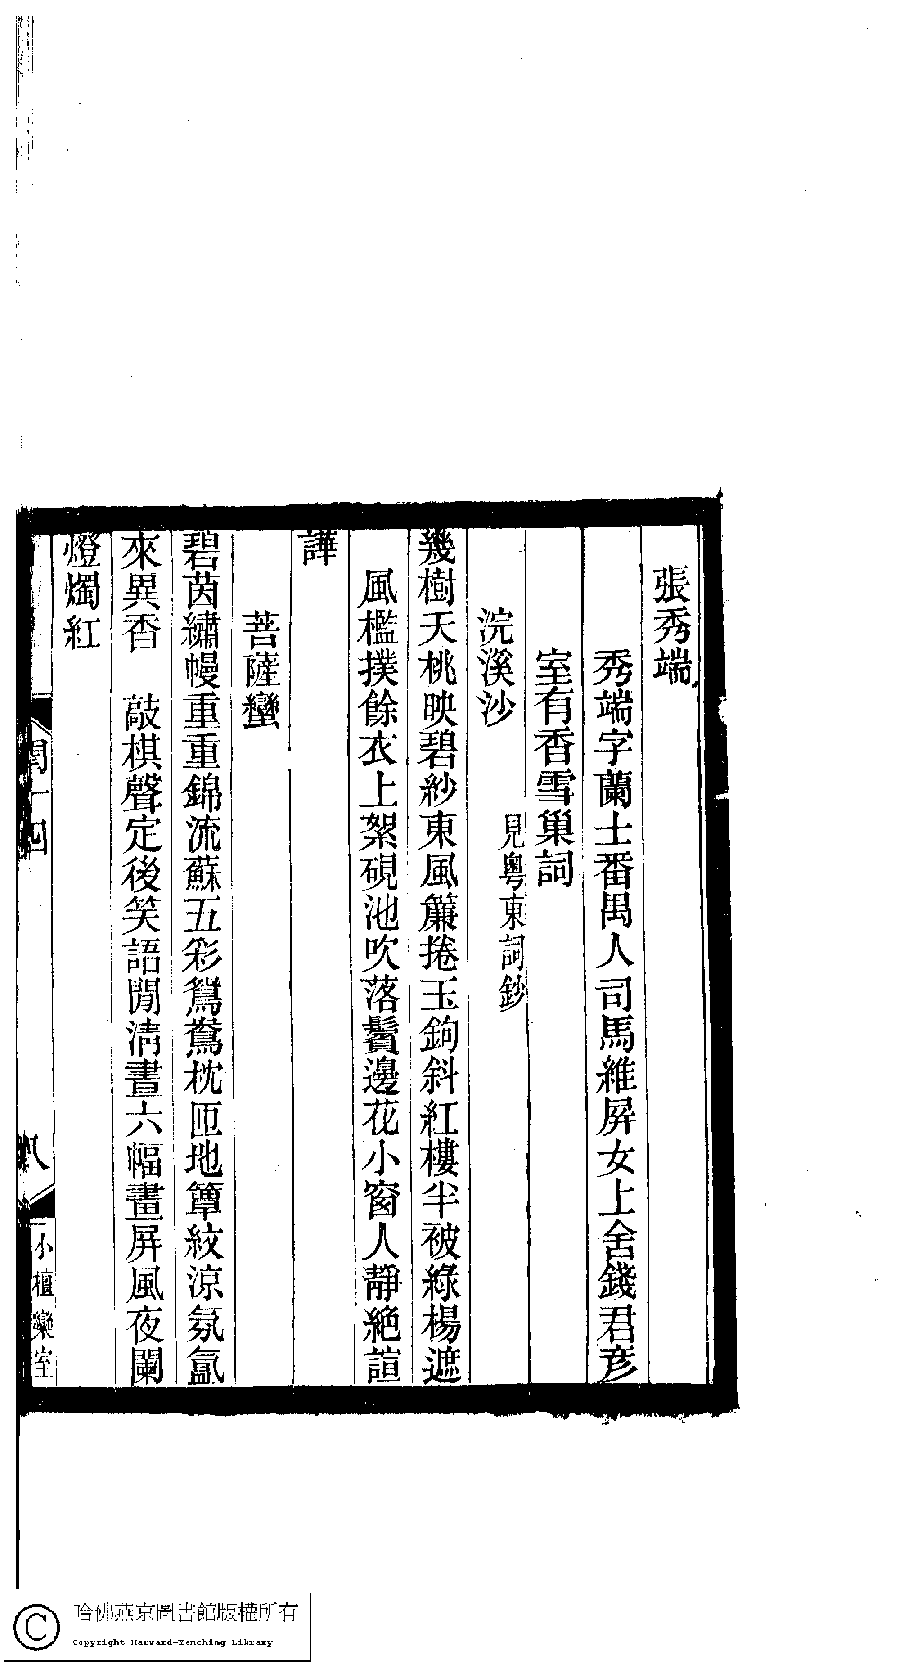 張秀端
秀端字蘭士番禺人司馬維屏女上舍錢君彥
室有香雪巢詞
浣溪沙 見粵東詞鈔
幾樹天桃映碧紗東風簾捲玉鉤斜紅樓半被綠楊遮
風檻撲餘衣上絮硯池吹落鬢邊花小窗人靜絶諠
譁
菩薩蠻
碧茵繡幔重重錦流蘇五彩鴛鴦枕匝地簟紋涼氛氳
來異香 敲棋聲定後笑語閒清晝六幅畫屏風夜闌
燈燭紅
閏十四
八
小檀欒室
哈佛燕京圖書館版權所有
Copyright Harvard-Yenching Library